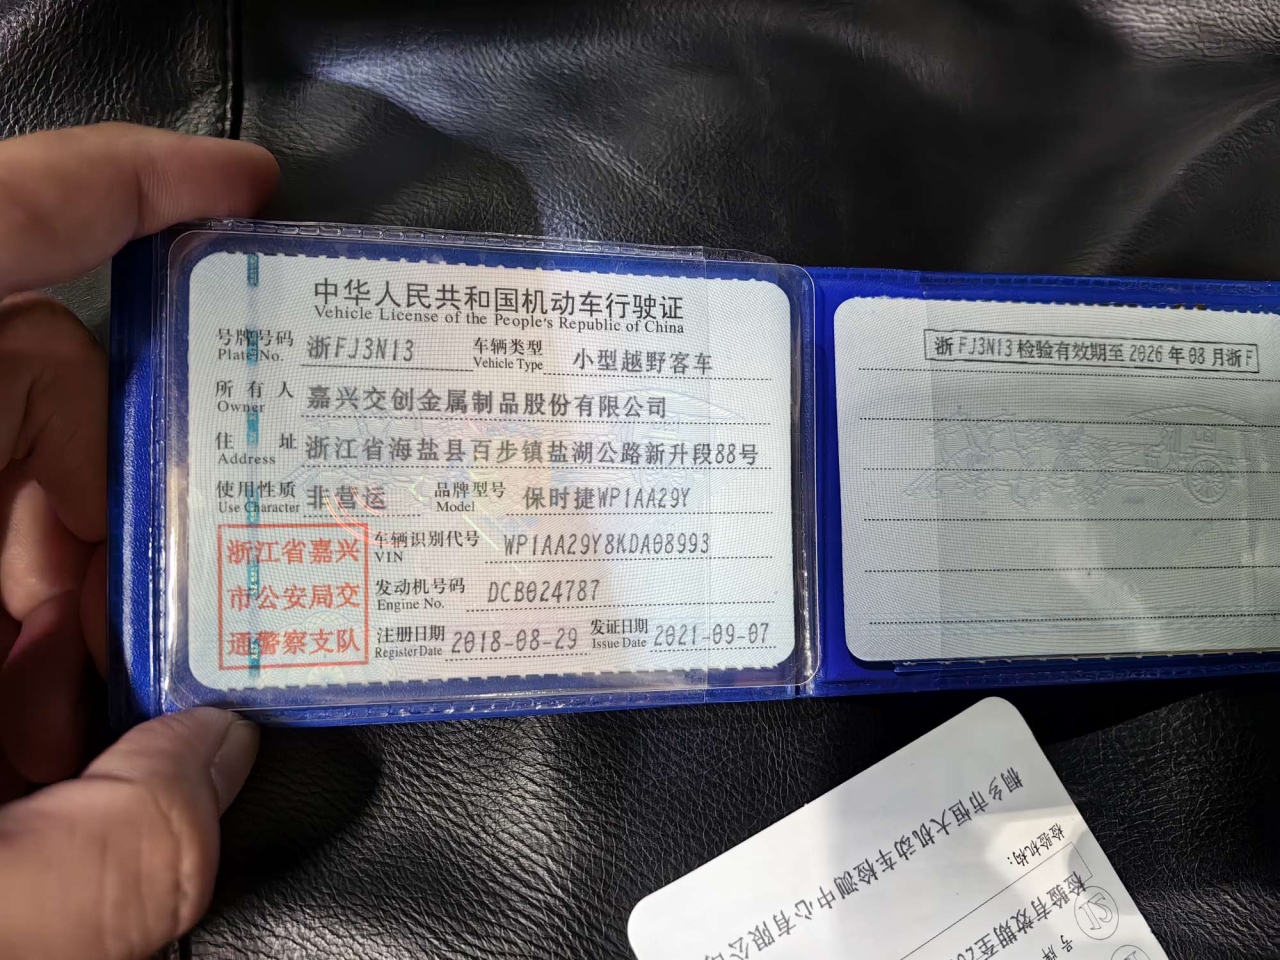 中华人民共和国机动车行驶证
Vehicle License of the People's Republic of China
号牌号码 浙FJ3N13 车辆类型 小型越野客车
Plate No. Vehicle Type
所有人 嘉兴交创金属制品股份有限公司
Owner
住址 浙江省海盐县百步镇盐湖公路新升段88号
Address
使用性质 非营运 品牌型号 保时捷WP1AA29Y
Use Character Model
浙江省嘉兴
市公安局交
通警察支队
车辆识别代号 WP1AA29Y8KDA08993
VIN
发动机号码 DCB024787
Engine No.
注册日期 2018-08-29 发证日期 2021-09-07
Register Date Issue Date
浙FJ3N13检验有效期至2026年08月浙F
检验机构：
桐乡市恒大机动车检测中心有限公司
检验有效期至20
号牌